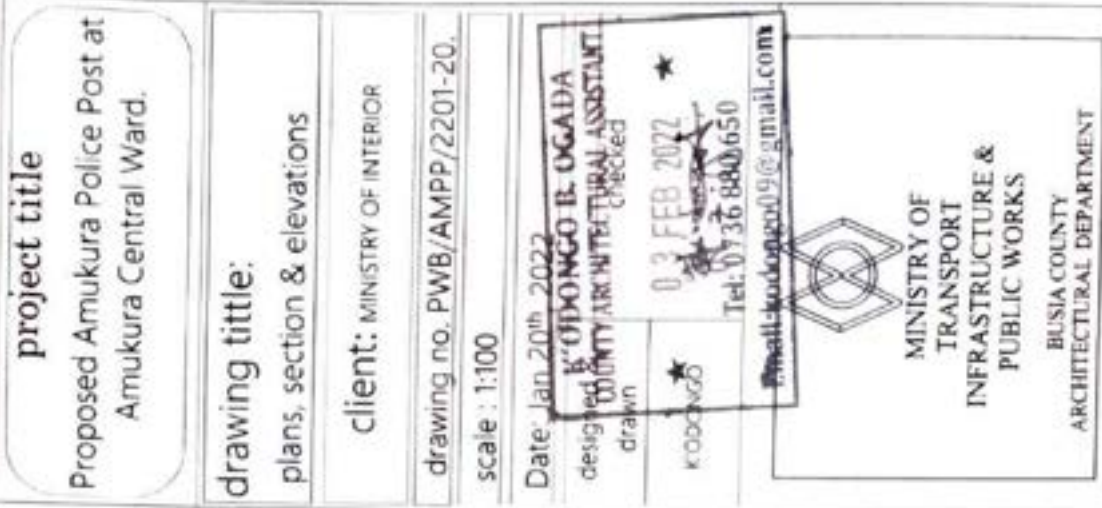 project title
Proposed Amukura Police Post at
Amukura Central Ward.
drawing tittle:
plans, section & elevations
client: MINISTRY OF INTERIOR
drawing no. PWB/AMPP/2201-20.
scale : 1:100
Date: Jan 20th 2022
K'ODONGO B. OGADA
COUNTY ARCHITECTURAL ASSISTANT
designed &
drawn
checked
03 FEB 2022
KODONGO
Tel: 0736 880 650
Email:kodongo09@gmail.com
MINISTRY OF
TRANSPORT
INFRASTRUCTURE &
PUBLIC WORKS
BUSIA COUNTY
ARCHITECTURAL DEPARTMENT